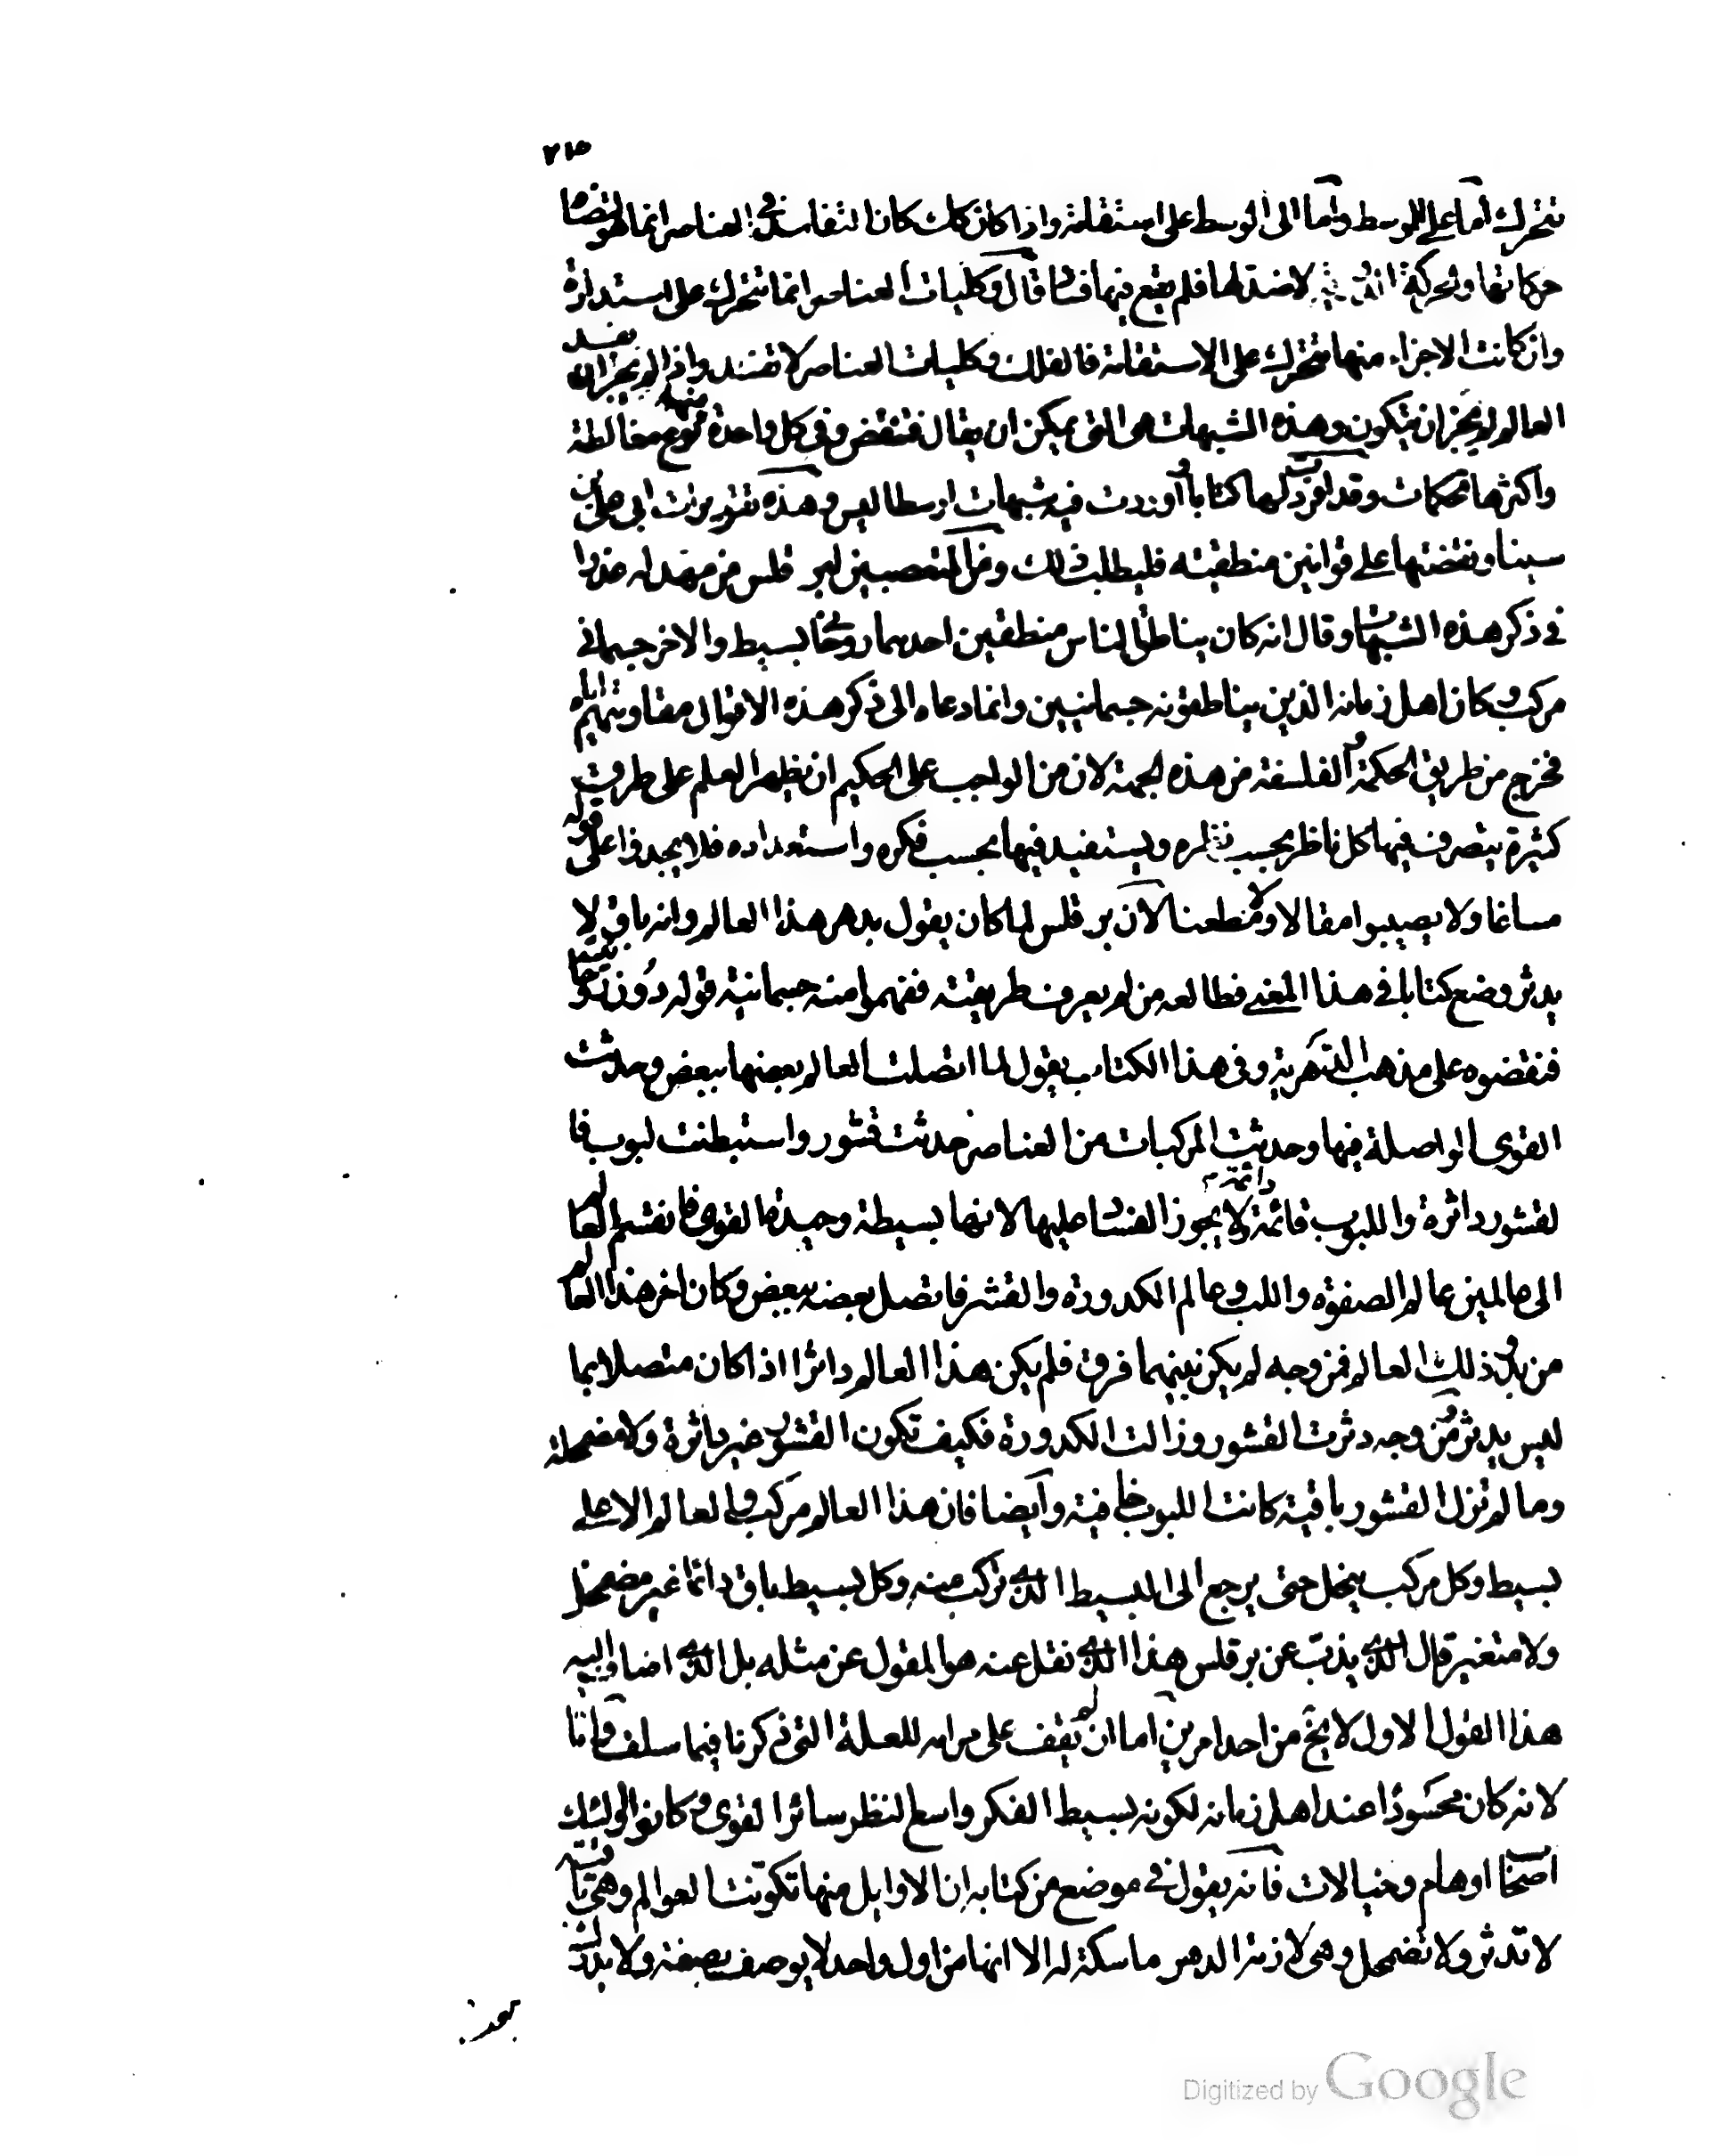 ٢١٥
تتحرك اما على الوسط واما الى الوسط على استقامة واذا كان كذلك كان التفاسد في العناصر انما هو لتضاد
حركاتها والحركة لا ضد لها فلم يقع فيها فساد قال وكليات العناصر انما تتحرك على استدارة
وان كانت الاجزاء منها تتحرك على الاستقامة فالفلك وكليات العناصر لا تفسد واذا لم يجز ان يفسد
العالم لم يجز ان يتكون وهذه الشبهات هى التى يمكن ان يقال فتنقض وفى كل واحدة منها نوع مغالطة
واكثرها تحكمات وقد افردت لها كتابا واوردت فيه شبهات ارسطاليس وهذه تقريرات ابى على بن
سينا ونقضتها على قوانين منطقية فليطلب ذلك ومن المتعصبين لبرقلس من مهد له عذرا
فى ذكر هذه الشبهات وقال انه كان يناطق الناس منطقين احدهما روحانى بسيط والاخر جسمانى
مركب وكان اهل زمانه الذين يناطقونه جسمانيين وانما دعاه الى ذكر هذه الاقوال مقاومتهم اياه
فخرج من طريق الحكمة والفلسفة من هذه الجهة لان من الواجب على الحكيم ان يظهر العلم على طرق
كثيرة يتصرف فيها كل ناظر بحسب نظره ويستفيد فيها بحسب فكره واستعداده فلا يجدوا على قوله
مساغا ولا يصيبوا مقالا ولا مطعنا لان برقلس لما كان يقول بدهر هذا العالم وانه باق لا
يدثر وضع كتابا فى هذا المعنى فطالعه من لم يعرف طريقته ففهموا منه جسمانية قوله دون روحانيته
فنقضوه على مذهب الدهرية وفى هذا الكتاب يقول لما اتصلت العالم بعضها ببعض وحدثت
القوى الواصلة فيها وحدثت المركبات من العناصر حدثت قشور واستبطنت لبوب فا
لقشور داثرة واللبوب قائمة دائمة لا يجوز الفساد عليها لانها بسيطة وحيدة القوى فانقسم العالم
الى عالمين عالم الصفوة واللب وعالم الكدورة والقشر فاتصل بعضه ببعض وكان اخر هذا العالم
من بدو ذلك العالم فمن وجه لم يكن بينهما فرق فلم يكن هذا العالم داثرا اذا كان متصلا بما
ليس يدثر ومن وجه دثرت القشور وزالت الكدورة فكيف تكون القشور غير داثرة ولا مضمحلة
وما لم تزل القشور باقية كانت اللبوب خافية وايضا فان هذا العالم مركب والعالم الاعلى
بسيط وكل مركب ينحل حتى يرجع الى البسيط الذى تركب منه وكل بسيط باق دائما غير مضمحل
ولا متغير قال الذى يذب عن برقلس هذا الذى نقل عنه هو المقول عن مثله بل الذى اضاف اليه
هذا القول الاول لا يخ من احد امرين اما ان لم يقف على مرامه للعلة التى ذكرنا فيما سلف واما
لانه كان محسودا عند اهل زمانه لكونه بسيط الفكر واسع النظر سائر القوى وكانوا اولئك
اصحاب اوهام وخيالات فانه يقول فى موضع من كتابه ان الاوايل منها تكونت العوالم وهى باقية
لا تدثر ولا تضمحل وهى لازمة الدهر ماسكة له الا انها من اول واحد لا يوصف بصفة ولا يدرك
Digitized by Google